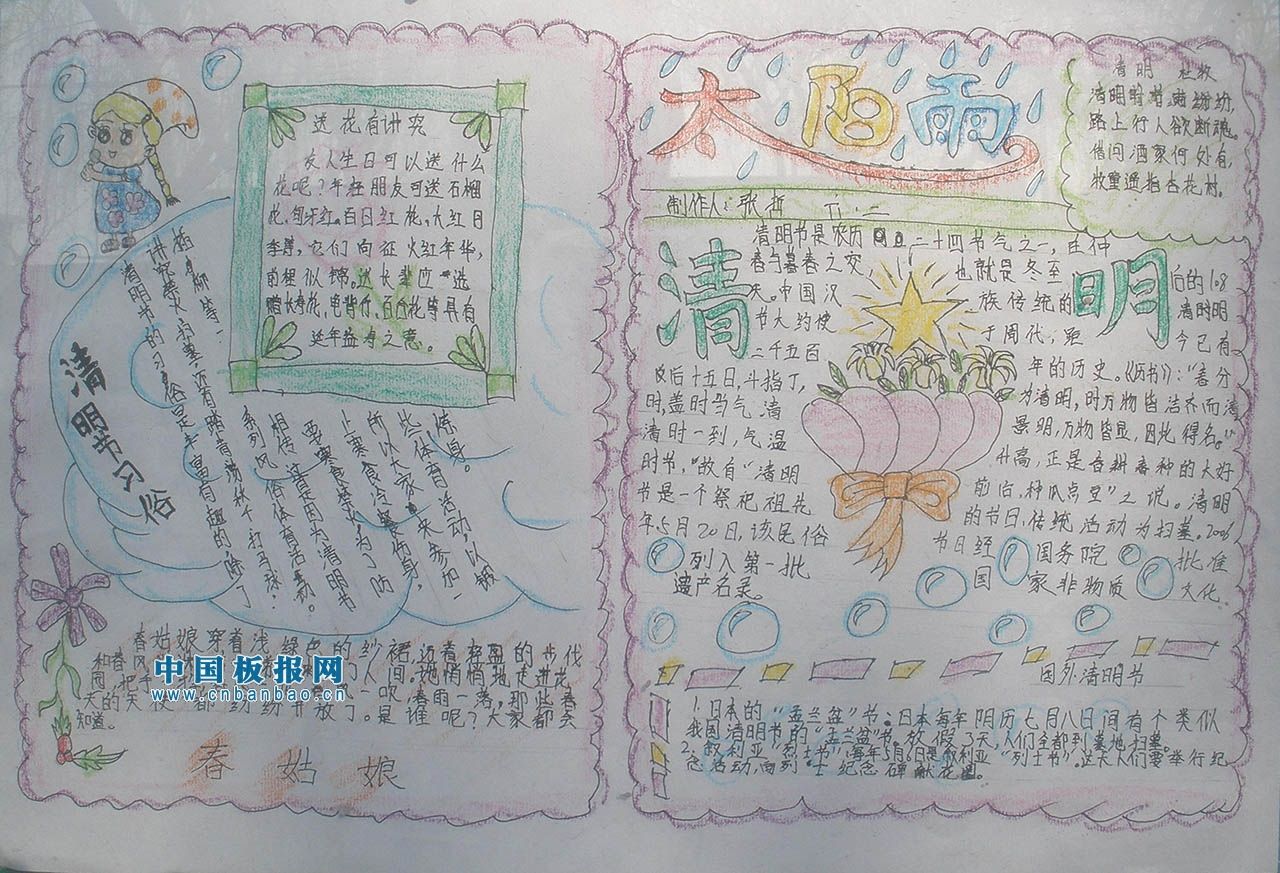 送花有讲究
友人生日可以送什么
花呢?年轻朋友可送石榴
花,
百日红花,大红月
季等,它们向征火红年华,
前程似锦。送长辈应选
赠长寿花,
百合花等具有
延年益寿之意。
清明节习俗
清明节的习俗是丰富有趣的,除了
讲究禁火、扫墓,还有踏青、荡秋千、打马球、
插柳等一
系列风俗体育活动。
相传这是因为清明节
要寒食禁火,为了防
止寒食冷餐伤身,
所以大家来参加一
些体育活动,以锻
炼身。
春姑娘穿着浅绿色的纱裙,迈着轻盈的步伐
和春风
人间。她悄悄地走进花
园,把手
一吹,春雨一落,那些春
天的天使,都纷纷开放了。是谁呢?大家都会
知道。
春姑娘
中国板报网
www.cnbanbao.cn
太阳雨
制作人:张哲 五.二
清明 杜牧
清明时节雨纷纷,
路上行人欲断魂。
借问酒家何处有,
牧童遥指杏花村。
清明
清明节是农历
二十四节气之一,在仲
春与暮春之交,
也就是冬至
后的108
天。中国汉
族传统的
清明
节大约使
于周代,距
今已有
二千五百
年的历史。《历书》:"春分
后十五日,斗指丁,
为清明,时万物皆洁齐而清
时,盖时当气清
景明,万物皆显,因此得名。"
清时一到,气温
升高,正是春耕春种的大好
时节,"故有"清明
前后,种瓜点豆"之说。清明
节是一个祭祀祖先
的节日,传统活动为扫墓。2006
年5月20日,该民俗
节日经
国务院
批准
列入第一批
国
家非物质
文化
遗产名录。
国外清明节
1.日本的"孟兰盆"节:日本每年阴历七月八日间有个类似
我国清明节的"孟兰盆"节,放假3天,人们全都到墓地扫墓。
2.叙利亚"烈士节":每年5月6日是叙利亚"列士节"。这天人们要举行纪
念活动,向列士纪念碑献花圈。